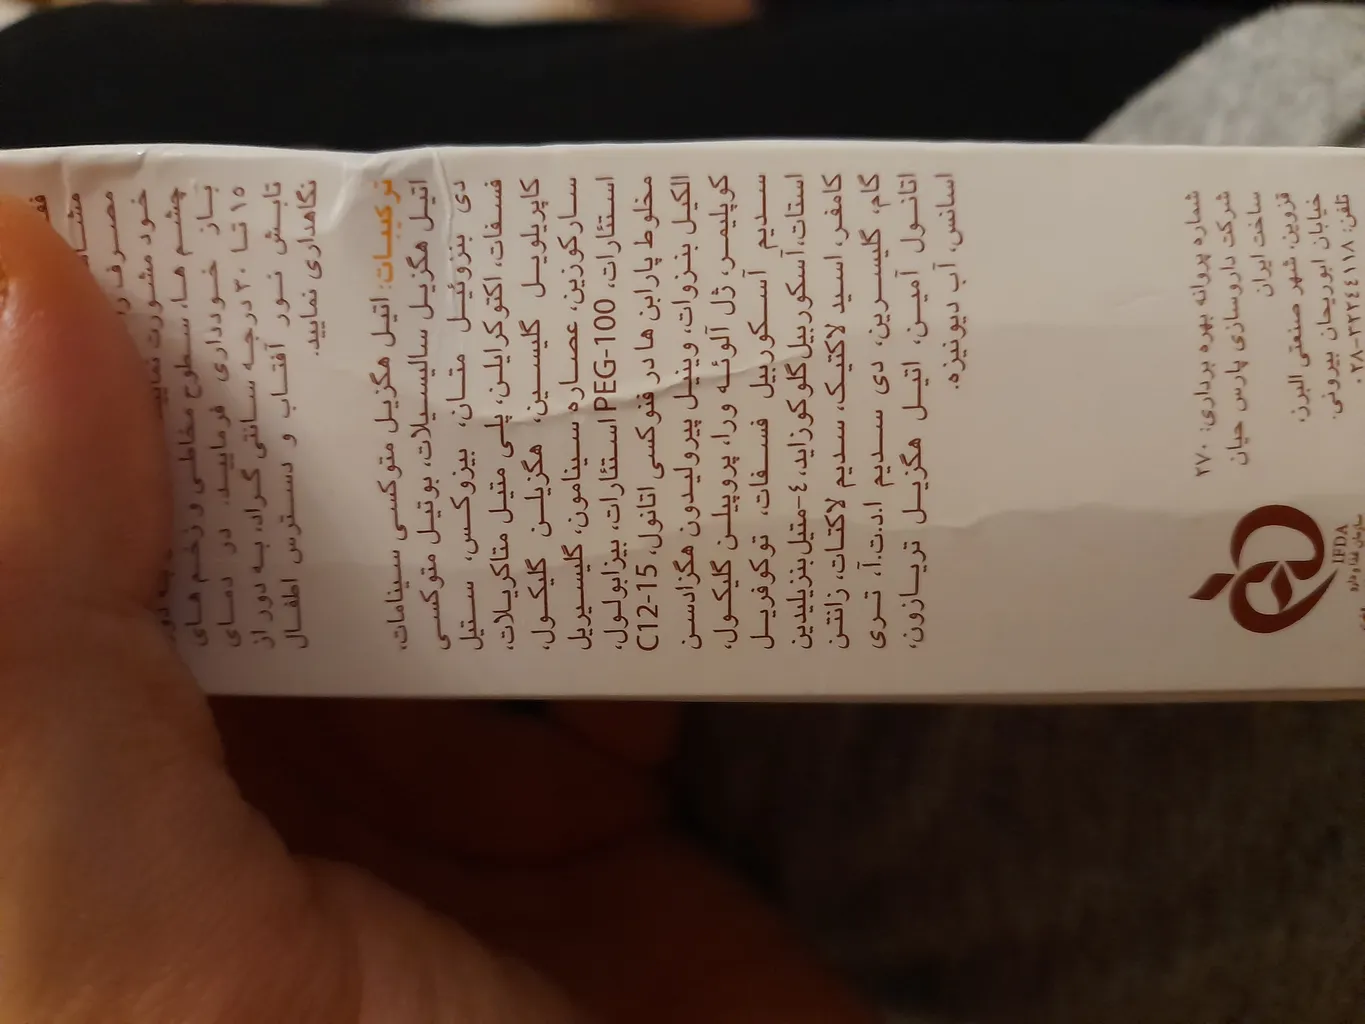 مصرف را
خود مشورت نمایید
چشم ها، سطوح مخاطی و زخم های
باز خودداری فرمایید. در دمای
۱۵ تا ۳۰ درجه سانتی گراد، به دور از
تابش نور آفتاب و دسترس اطفال
نگاهداری نمایید.
ترکیبات: اتیل هگزیل متوکسی سینامات،
اتیل هگزیل سالیسیلات، بوتیل متوکسی
دی بنزوئیل متان، بیزوکس، ستیل
فسفات، اکتوکرایلن، پلی متیل متاکریلات،
کاپریلویل گلیسین، هگزیلن گلیکول،
سارکوزین، عصاره سینامون، گلیسیریل
استئارات، PEG-100 استئارات، بیزابولول،
مخلوط پارابن ها در فنوکسی اتانول، C12-15
الکیل بنزوات، وینیل پیرولیدون هگزادسن
کوپلیمر، ژل آلوئه ورا، پروپیلن گلیکول،
سدیم آسکوربیل فسفات، توکوفریل
استات، آسکوربیل گلوکوزاید، ٤-متیل بنزیلیدین
کامفر، اسید لاکتیک، سدیم لاکتات، زانتن
گام، گلیسرین، دی سدیم ا.د.ت.آ، تری
اتانول آمین، اتیل هگزیل تریازون،
اسانس، آب دیونیزه.
شماره پروانه بهره برداری: ۲۷۰
شرکت داروسازی پارس حیان
ساخت ایران
قزوین، شهر صنعتی البرز،
خیابان ابوریحان بیرونی.
تلفن: ۳۲۲٤٤۱۱۸-۰۲۸
IFDA
سازمان غذا و دارو